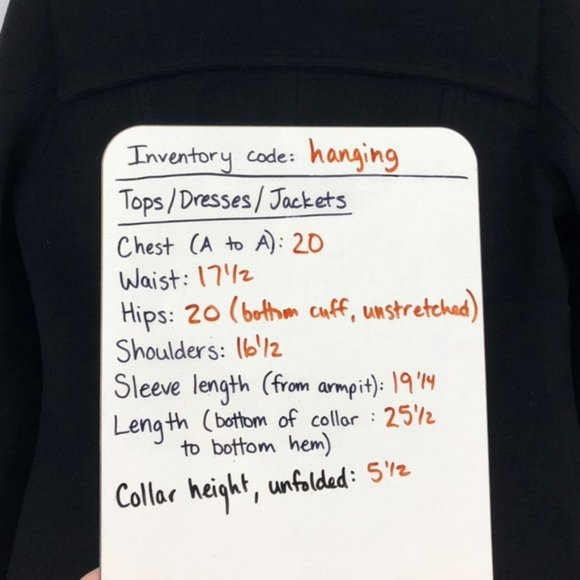 Inventory code: hanging
Tops/Dresses/Jackets
Chest (A to A): 20
Waist: 17 1/2
Hips: 20 (bottom cuff, unstretched)
Shoulders: 16 1/2
Sleeve length (from armpit): 19 1/4
Length (bottom of collar : 25 1/2
to bottom hem)
Collar height, unfolded: 5 1/2